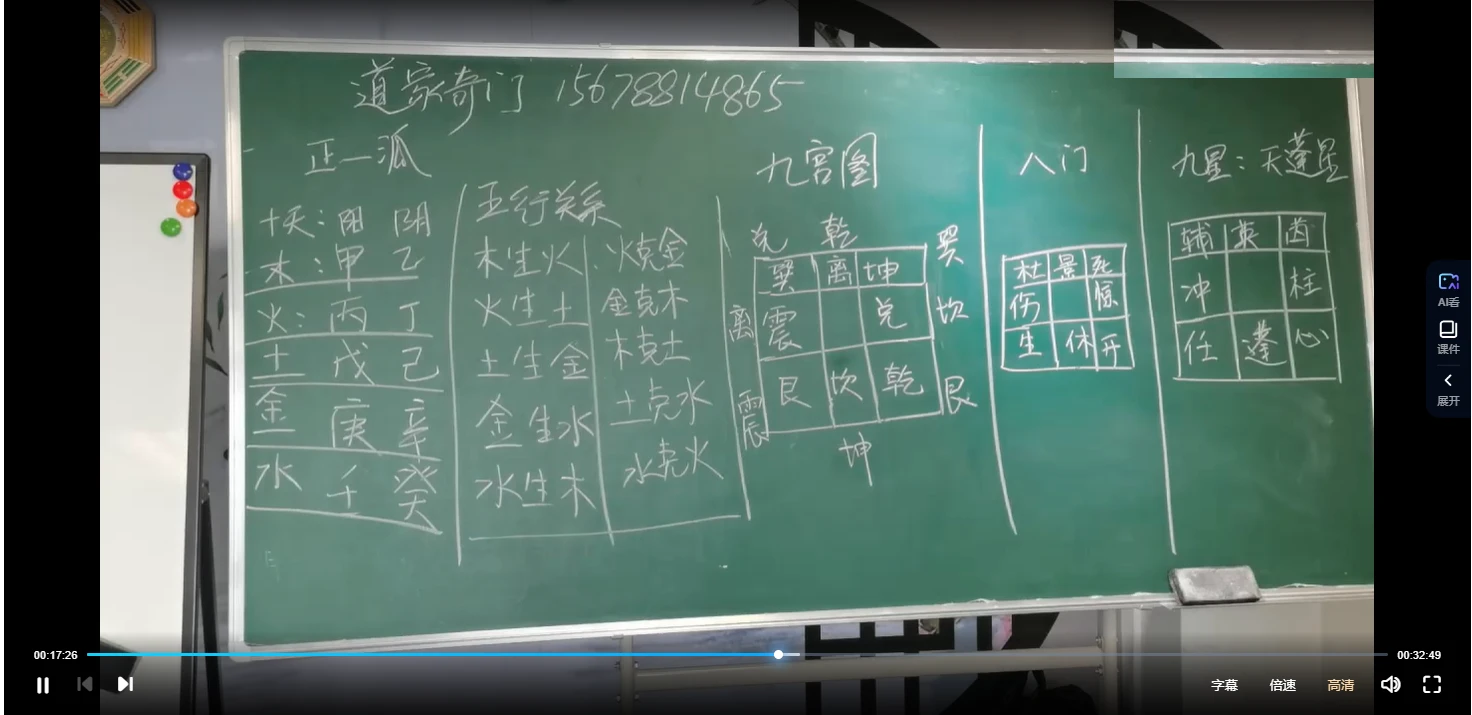 道家奇门 15678814865
正一派
十天：阳 阴
木：甲 乙
火：丙 丁
土 戊 己
金 庚 辛
水 壬 癸
五行关系
木生火 火克金
火生土 金克木
土生金 木克土
金生水 土克水
水生木 水克火
九宫图
兑 乾 巽
巽 离 坤
离 震 兑 坎
震 艮 坎 乾 艮
坤
八门
杜 景 死
伤 惊
生 休 开
九星：天蓬星
辅 英 芮
冲 柱
任 蓬 心
AI看
课件
展开
00:17:26
00:32:49
字幕 倍速 高清